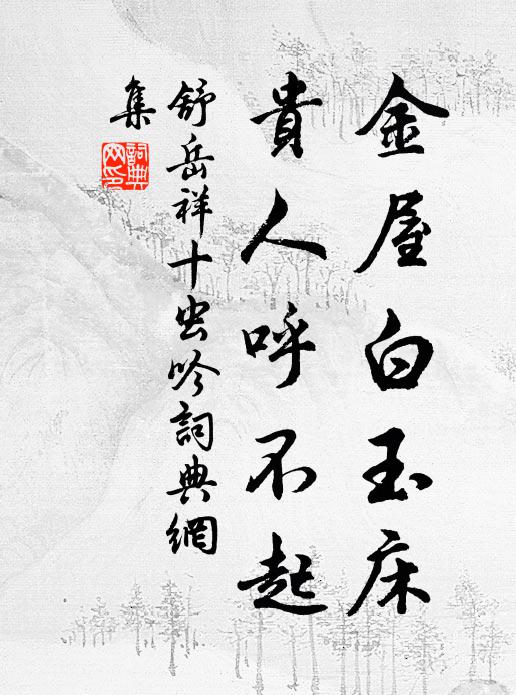 金屋白玉床
貴人呼不起
舒岳祥十虫吟詞典網
集
詞典网印